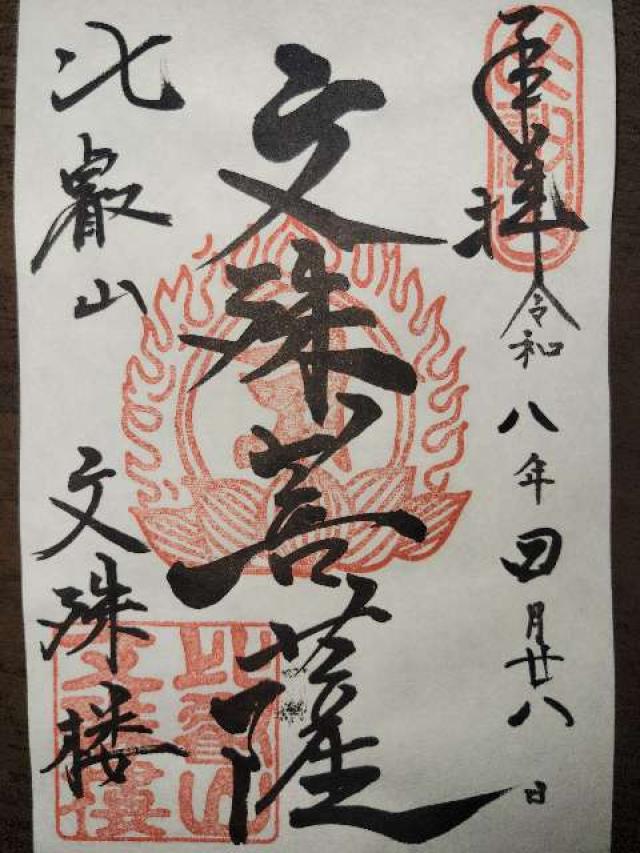 奉拝
令和八年四月廿八日
文殊菩薩
比叡山 文殊楼
比叡山
文殊楼